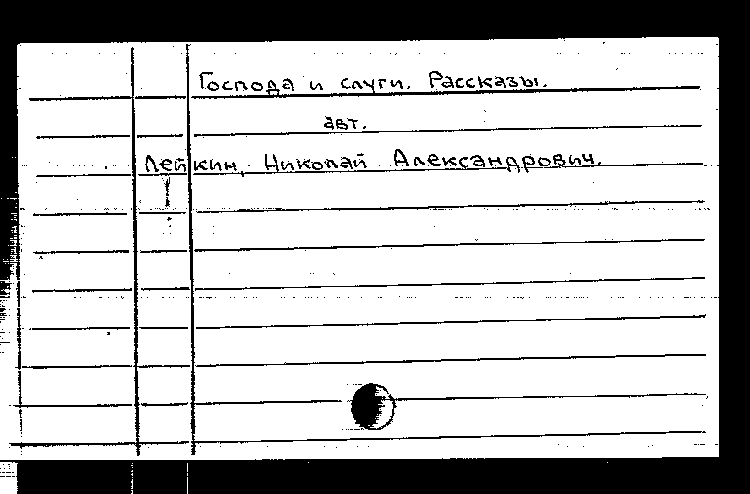 Господа и слуги. Рассказы.
авт.
Лейкин, Николай Александрович.